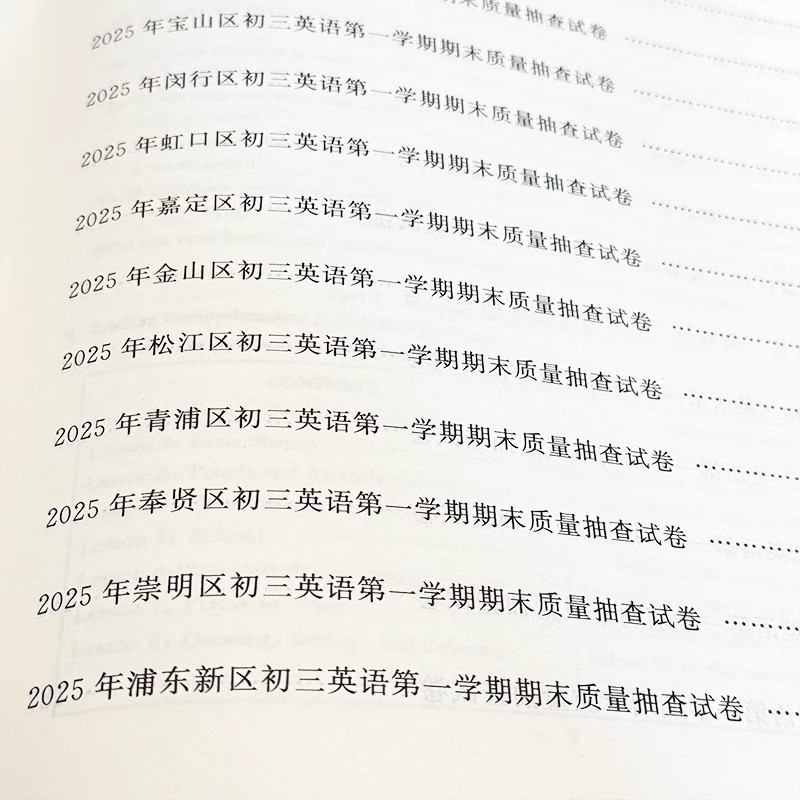 末质量抽查试卷
2025 年宝山区初三英语第一学期期末质量抽查试卷
2025 年闵行区初三英语第一学期期末质量抽查试卷
2025 年虹口区初三英语第一学期期末质量抽查试卷
2025 年嘉定区初三英语第一学期期末质量抽查试卷
2025 年金山区初三英语第一学期期末质量抽查试卷
2025 年松江区初三英语第一学期期末质量抽查试卷
2025 年青浦区初三英语第一学期期末质量抽查试卷
2025 年奉贤区初三英语第一学期期末质量抽查试卷
2025 年崇明区初三英语第一学期期末质量抽查试卷
2025 年浦东新区初三英语第一学期期末质量抽查试卷